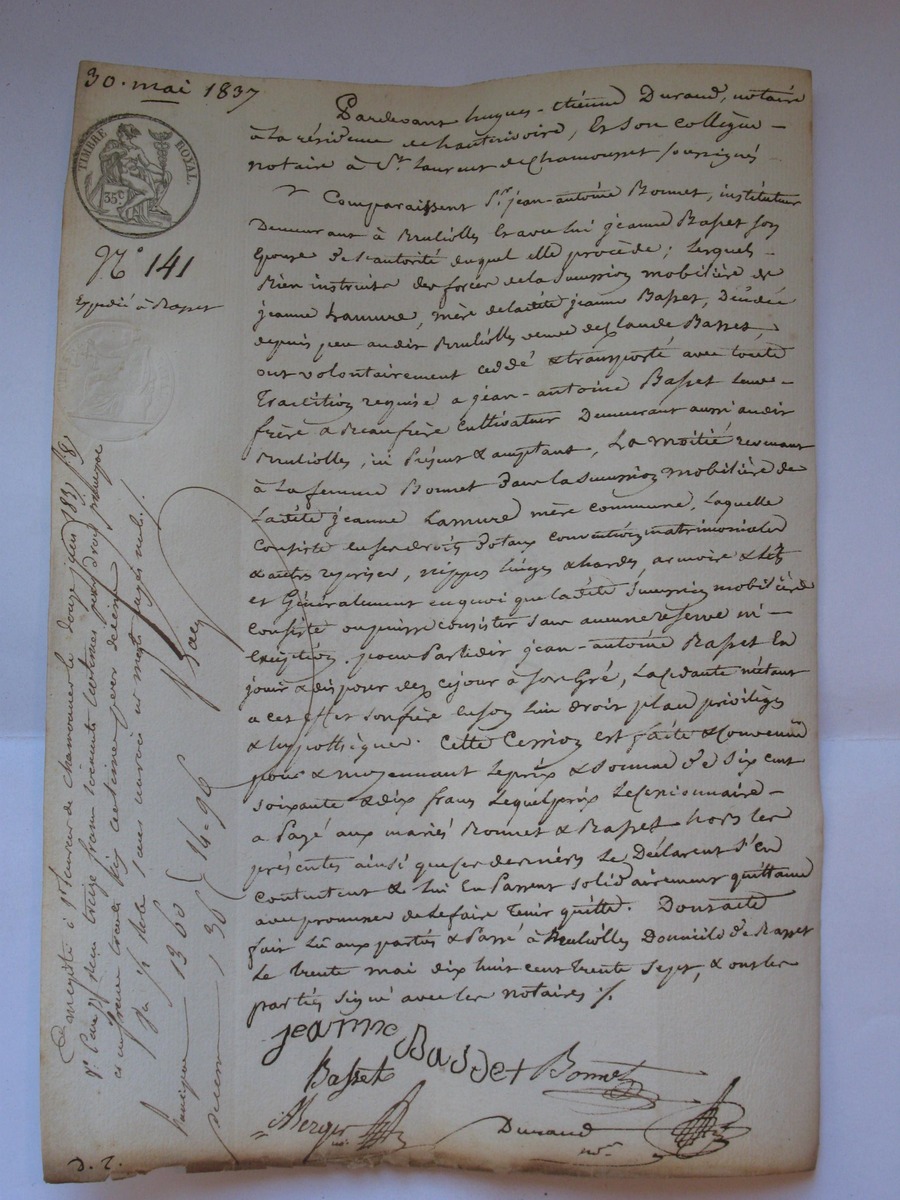 30. mai 1837
TIMBRE ROYAL
35c
N° 141
Expédié à Basset
Pardevant hugues-étienne Durand, notaire
à la résidence de hauterivoire, Et son collègue
notaire à St. Laurent de Chamousset soussignés
Comparaissent Sr. jean-antoine Bonnet, instituteur
Demeurant à Brullioles Et avec lui jeanne Basset son
Epouse de l'autorité duquel elle procède ; lesquels
Bien instruits des forces de la succession mobilière de
jeanne Lamure, mère de ladite jeanne Basset, Décédée
depuis peu audit Brullioles veuve de Claude Basset
ont volontairement ceddé & transporté avec toute
Tradition requise a jean-antoine Basset leur
frère & Beaufrère Cultivateur Demeurant aussi audit
Brullioles, ici Présent & acceptant, La moitié revenant
à la femme Bonnet dans la succession mobilière de
ladite jeanne Lamure mère commune, Laquelle
Consiste en ses droits dotaux conventions matrimoniales
& autres reprises, nippes linges & hardes, armoire & lits
et Généralement en quoi que ladite succession mobilière
Consiste ou puisse consister sans aucune réserve ni
Exception. pour Parledit jean-antoine Basset En
jouir & disposer dez cejour à son Gré, La cédante mettant
a cet effet son frère en son lieu droit place privilèges
& hypothèques. Cette Cession est faite & Convenue
pour & moyennant le prix & Somme de Six cent
soixante & dix francs lequel prix le cessionnaire
a Payé aux mariés Bonnet & Basset hors les
présentes ainsi que ces derniers le Déclarent s'en
Contentent & lui En Passent solidairement quittance
avec promesse de le faire Tenir quitte. Dont acte
fait lû aux parties & Passé à Brullioles Domicile de Basset
Le trente mai dix huit cent trente Sept, & ont les
parties signé avec les notaires ./.
jeanne Basset
Basset Bonnet
Durand
D. T.
Enregistré à St. Laurent de Chamousset le douze juin 1837
reçu treize francs soixante centimes pour droit principal
et un franc trente six centimes pour décime
Principal 13 60
décime 1 36
14-96